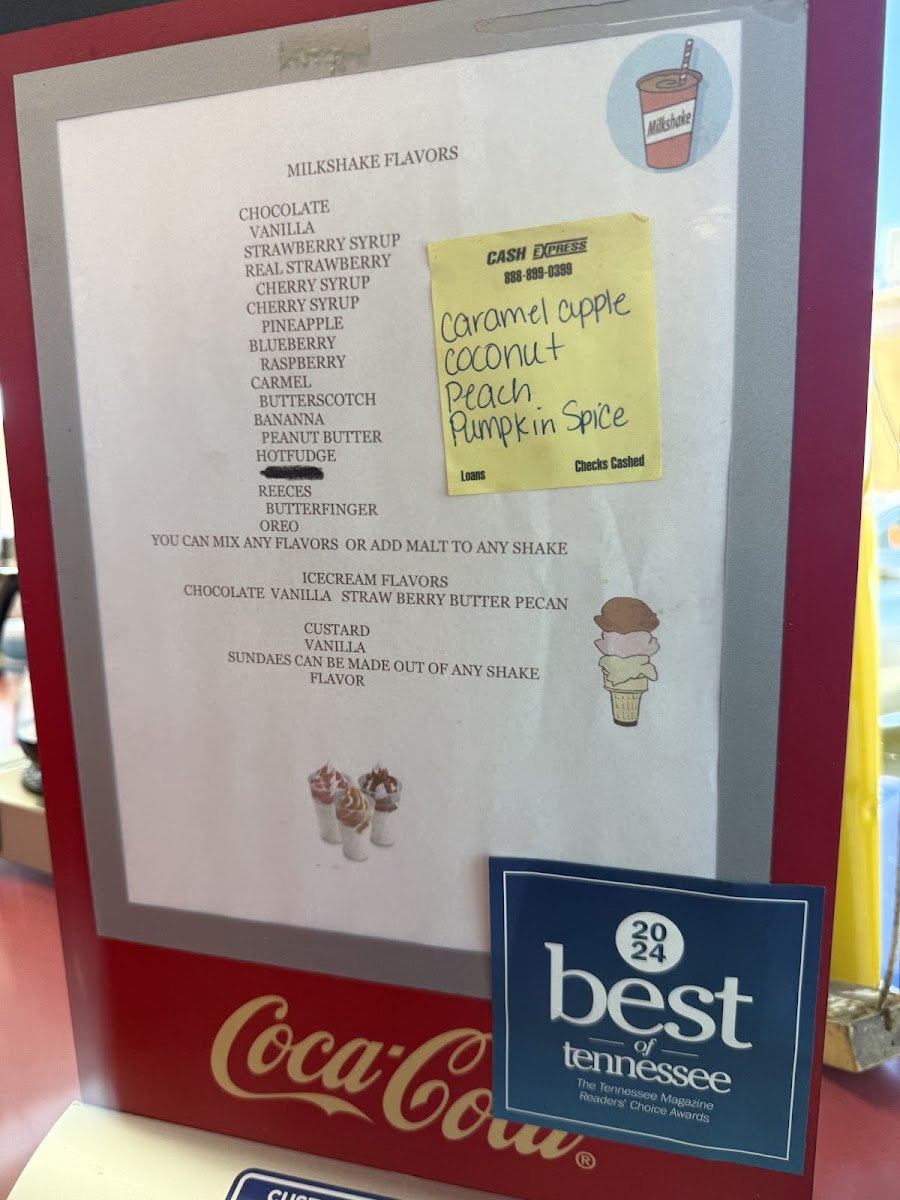 Milkshake
MILKSHAKE FLAVORS
CHOCOLATE
VANILLA
STRAWBERRY SYRUP
REAL STRAWBERRY
CHERRY SYRUP
CHERRY SYRUP
PINEAPPLE
BLUEBERRY
RASPBERRY
CARMEL
BUTTERSCOTCH
BANANNA
PEANUT BUTTER
HOTFUDGE
REECES
BUTTERFINGER
OREO
YOU CAN MIX ANY FLAVORS OR ADD MALT TO ANY SHAKE
ICECREAM FLAVORS
CHOCOLATE VANILLA STRAW BERRY BUTTER PECAN
CUSTARD
VANILLA
SUNDAES CAN BE MADE OUT OF ANY SHAKE
FLAVOR
CASH EXPRESS
888-899-0399
Caramel apple
Coconut
Peach
Pumpkin Spice
Loans Checks Cashed
Coca-Cola®
20
24
best
of
tennessee
The Tennessee Magazine
Readers' Choice Awards